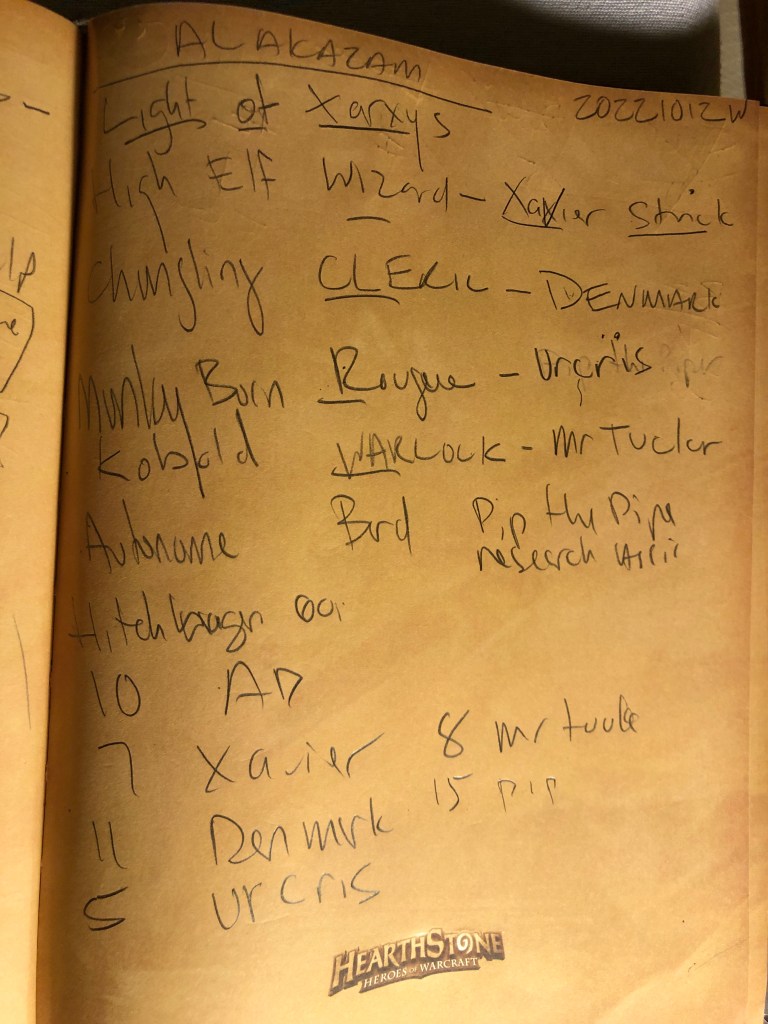 ALAKAZAM
20221012W
Light of Xarxys
High Elf Wizard - Xavier Strick
Changling CLERIC - DENMARK
Rougue - Urcriis Piper
Kobold WARLOCK - Mr Tucler
Autonome Bard Pip the Pipe
research
10 AD
7 Xavier 8 mr
11 Denmark 15 pip
5 urcris
HEARTHSTONE
HEROES OF WARCRAFT